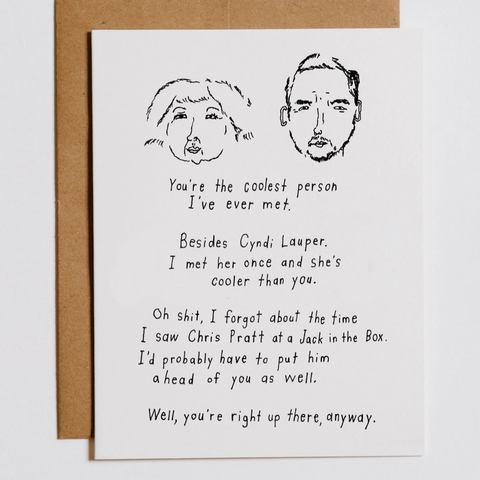 You're the coolest person
I've ever met.
Besides Cyndi Lauper.
I met her once and she's
cooler than you.
Oh shit, I forgot about the time
I saw Chris Pratt at a Jack in the Box.
I'd probably have to put him
ahead of you as well.
Well, you're right up there, anyway.